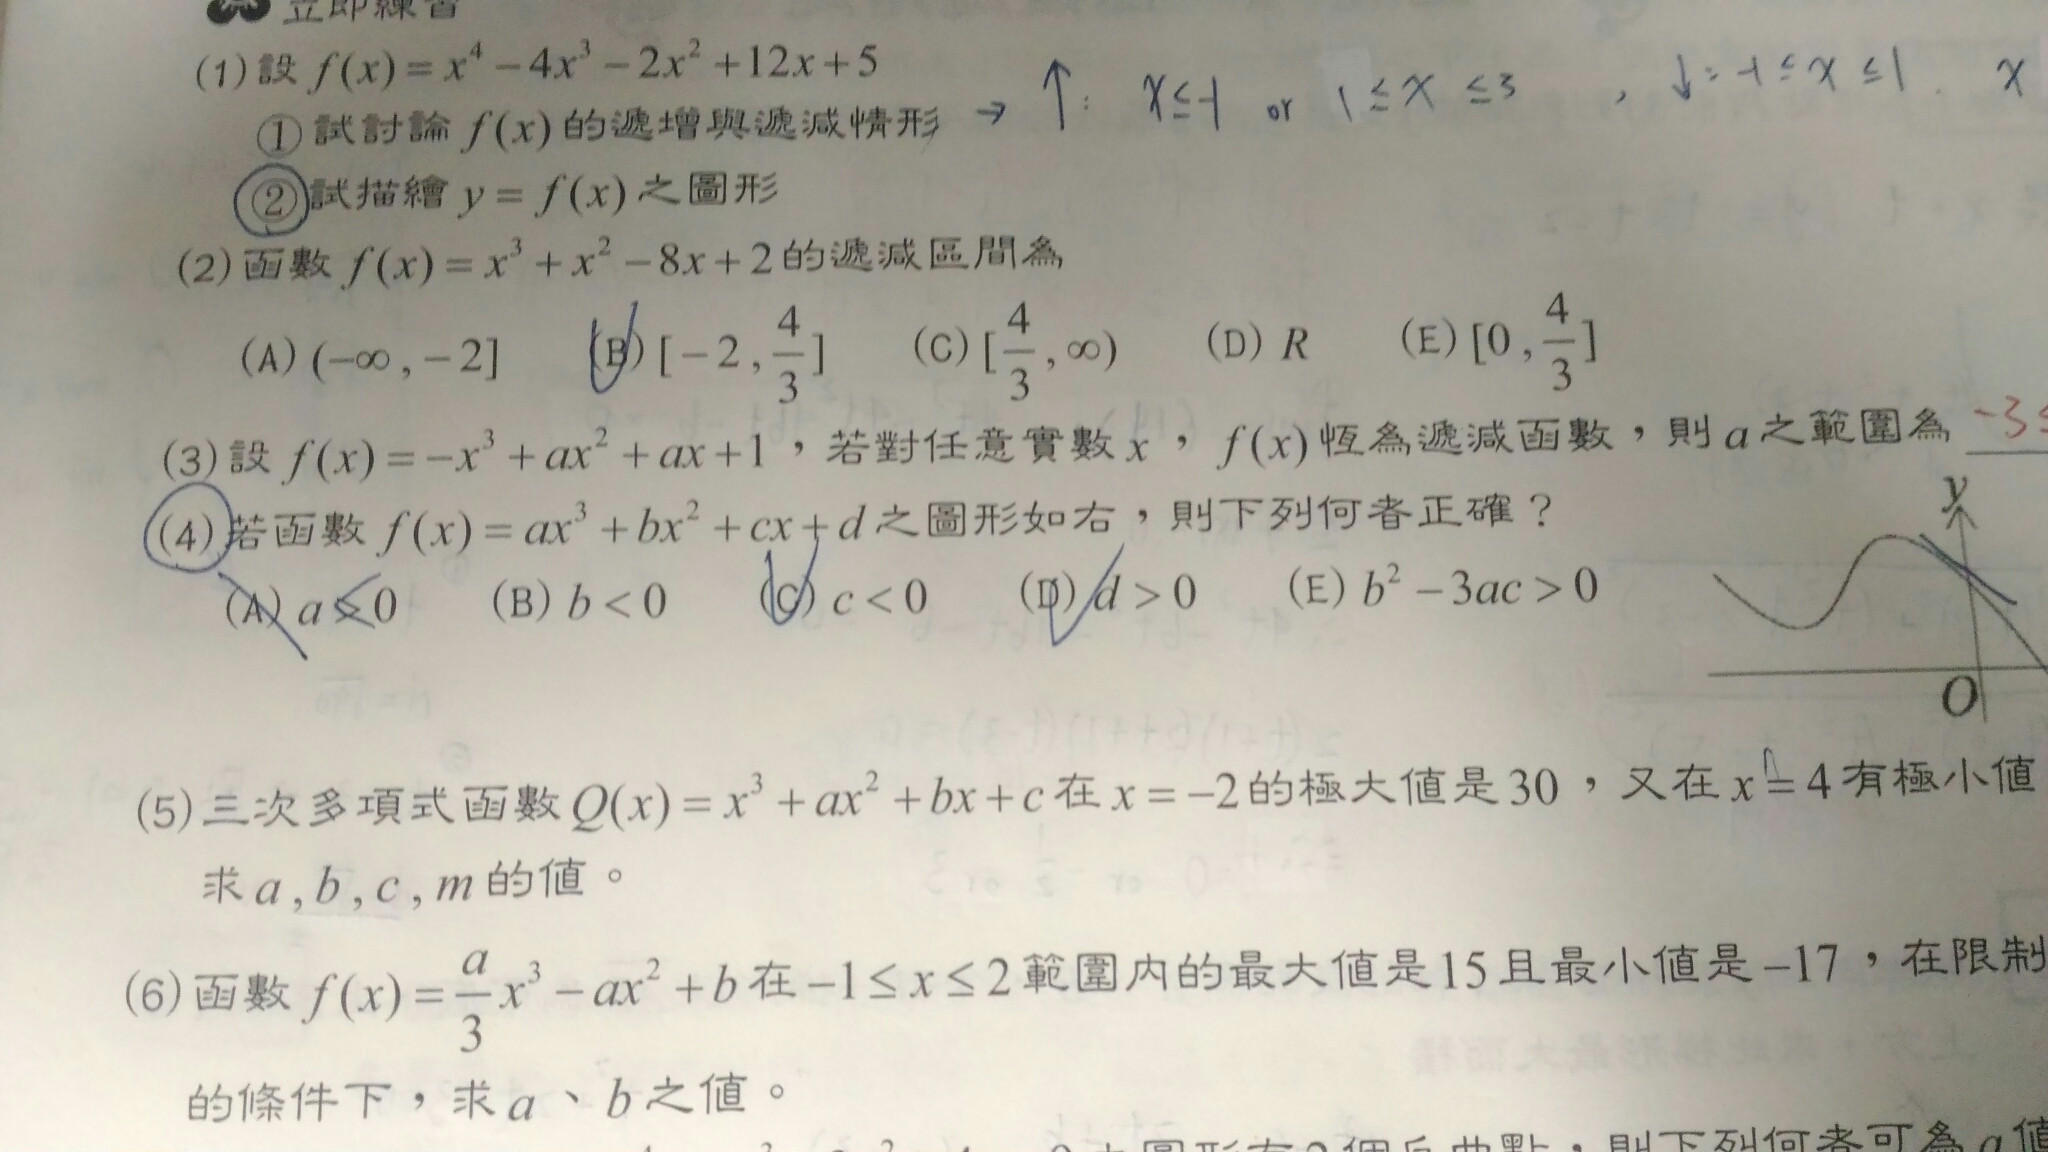 立即練習
(1) 設 f(x) = x⁴ − 4x³ − 2x² + 12x + 5
① 試討論 f(x) 的遞增與遞減情形 → ↑: x ≤ -1 or 1 ≤ x ≤ 3 , ↓: -1 ≤ x ≤ 1. x
② 試描繪 y = f(x) 之圖形
(2) 函數 f(x) = x³ + x² − 8x + 2 的遞減區間為
(A) (−∞, −2] (B) [−2, 4/3] (C) [4/3, ∞) (D) R (E) [0, 4/3]
(3) 設 f(x) = −x³ + ax² + ax + 1,若對任意實數 x,f(x) 恆為遞減函數,則 a 之範圍為 -3≤
(4) 若函數 f(x) = ax³ + bx² + cx + d 之圖形如右,則下列何者正確?
(A) a < 0 (B) b < 0 (C) c < 0 (D) d > 0 (E) b² − 3ac > 0
y
O
(5) 三次多項式函數 Q(x) = x³ + ax² + bx + c 在 x = −2 的極大值是 30,又在 x = 4 有極小值
求 a, b, c, m 的值。
(6) 函數 f(x) = a/3 x³ − ax² + b 在 −1 ≤ x ≤ 2 範圍內的最大值是 15 且最小值是 −17,在限制
的條件下,求 a、b 之值。
圖形有2個反曲點,則下列何者可為 a 值